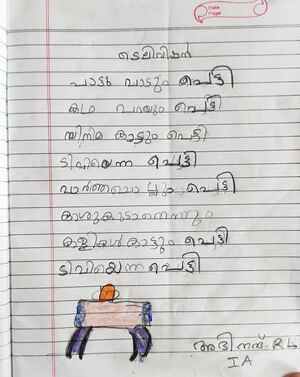 Date
Page
ടെലിവിഷൻ
പാട്ടു പാടും പെട്ടി
കഥ പറയും പെട്ടി
സിനിമ കാട്ടും പെട്ടി
ടിവിയെന്ന പെട്ടി
വാർത്ത പെട്ടി
കളികൾകാട്ടും പെട്ടി
ടിവിയെന്ന പെട്ടി
അഭിനന്ദ്. R L
I A